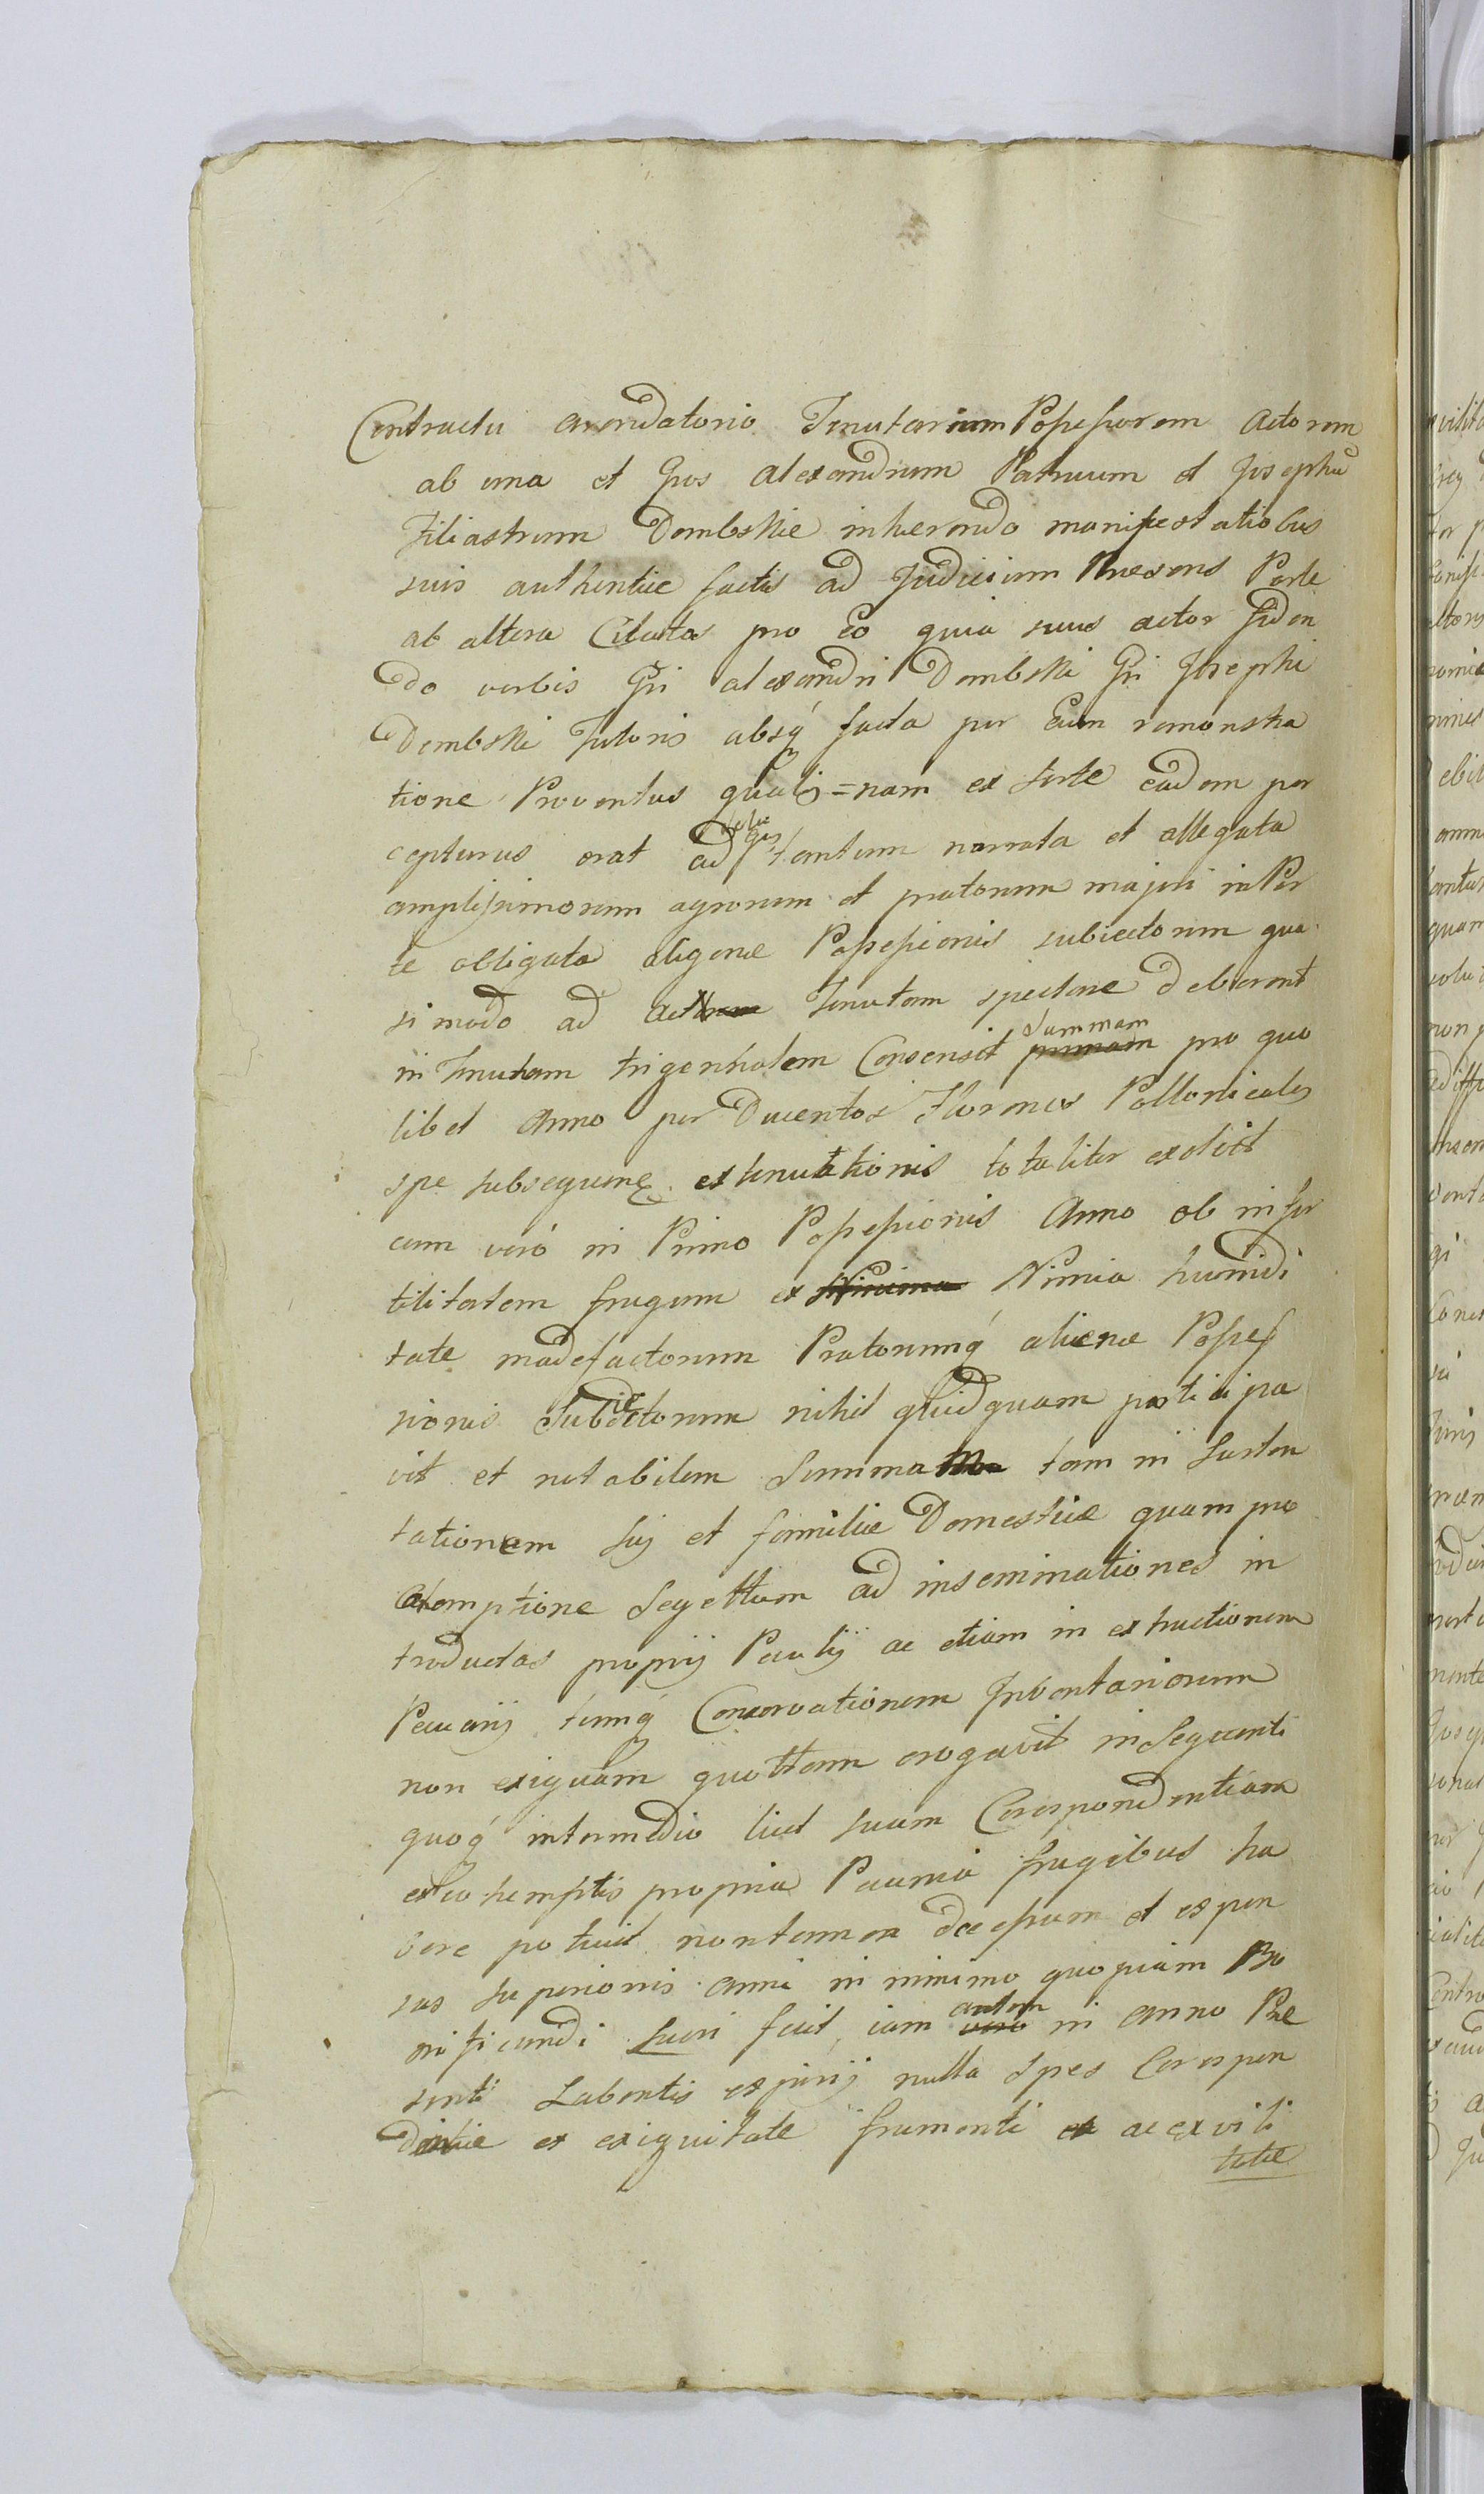 Contractu arendatorio Tenutarium Possessorem Actorem
ab una et Gros Alexandrum Patruum et Josephū
Filiastrum Dombskie inhærendo manifestatiobus
suis authentice factis ad Judicium Præsens Parte
ab altera Citatos pro eo quia suus actor fiden
do verbis Gri Alexandri Dombski Gri Josephi
Dombski Tutoris absq́ facta per Eum remonstra
tione Proventus qualis=nam ex sorte eadem per
cepturus erat ad tantum narrata et allegata
amplissimorum agrorum et pratorum majori in Par
te obligata aligenæ Possessionis subiectorum qua
si modo ad Tenutam spectare deberent
in Tenutam trigennalem Consensit Summam pro quo
libet Anno per Ducentos Florenos Pollonicales
spe subsequenę extenutationis totaliter exolvit
cum veró in Primo Possessionis Anno ob infer
tilitatem frugum ex Nimia humidi
tate madefactorum Pratorumq́ alienæ Posses
sionis Subiectorum nihil quidquam participa
vit et notabilem Summam tam in Susten
tationem sui et familiæ Domesticæ quam pro
coemptione Segettum ad inseminationes in
troductas proprij Peculij ac etiam in extructionem
Pecuarij tumq́ Conservationem Inventariorum
non exiguam quottam erogavit in Sequenti
quoq́ intermedio licet suam Corespondentiam
ex coemptis propria Pecunia frugibus ha
bere potuit non tamen decessum et expen
sas superioris anni in minimo quopiam Bo
nificandi Lucri fecit, iam autem in anno Præ
senti Labentis expirij nulla Spes Corespon
dentiæ ex exiguitate frumenti ac ex vili
tate